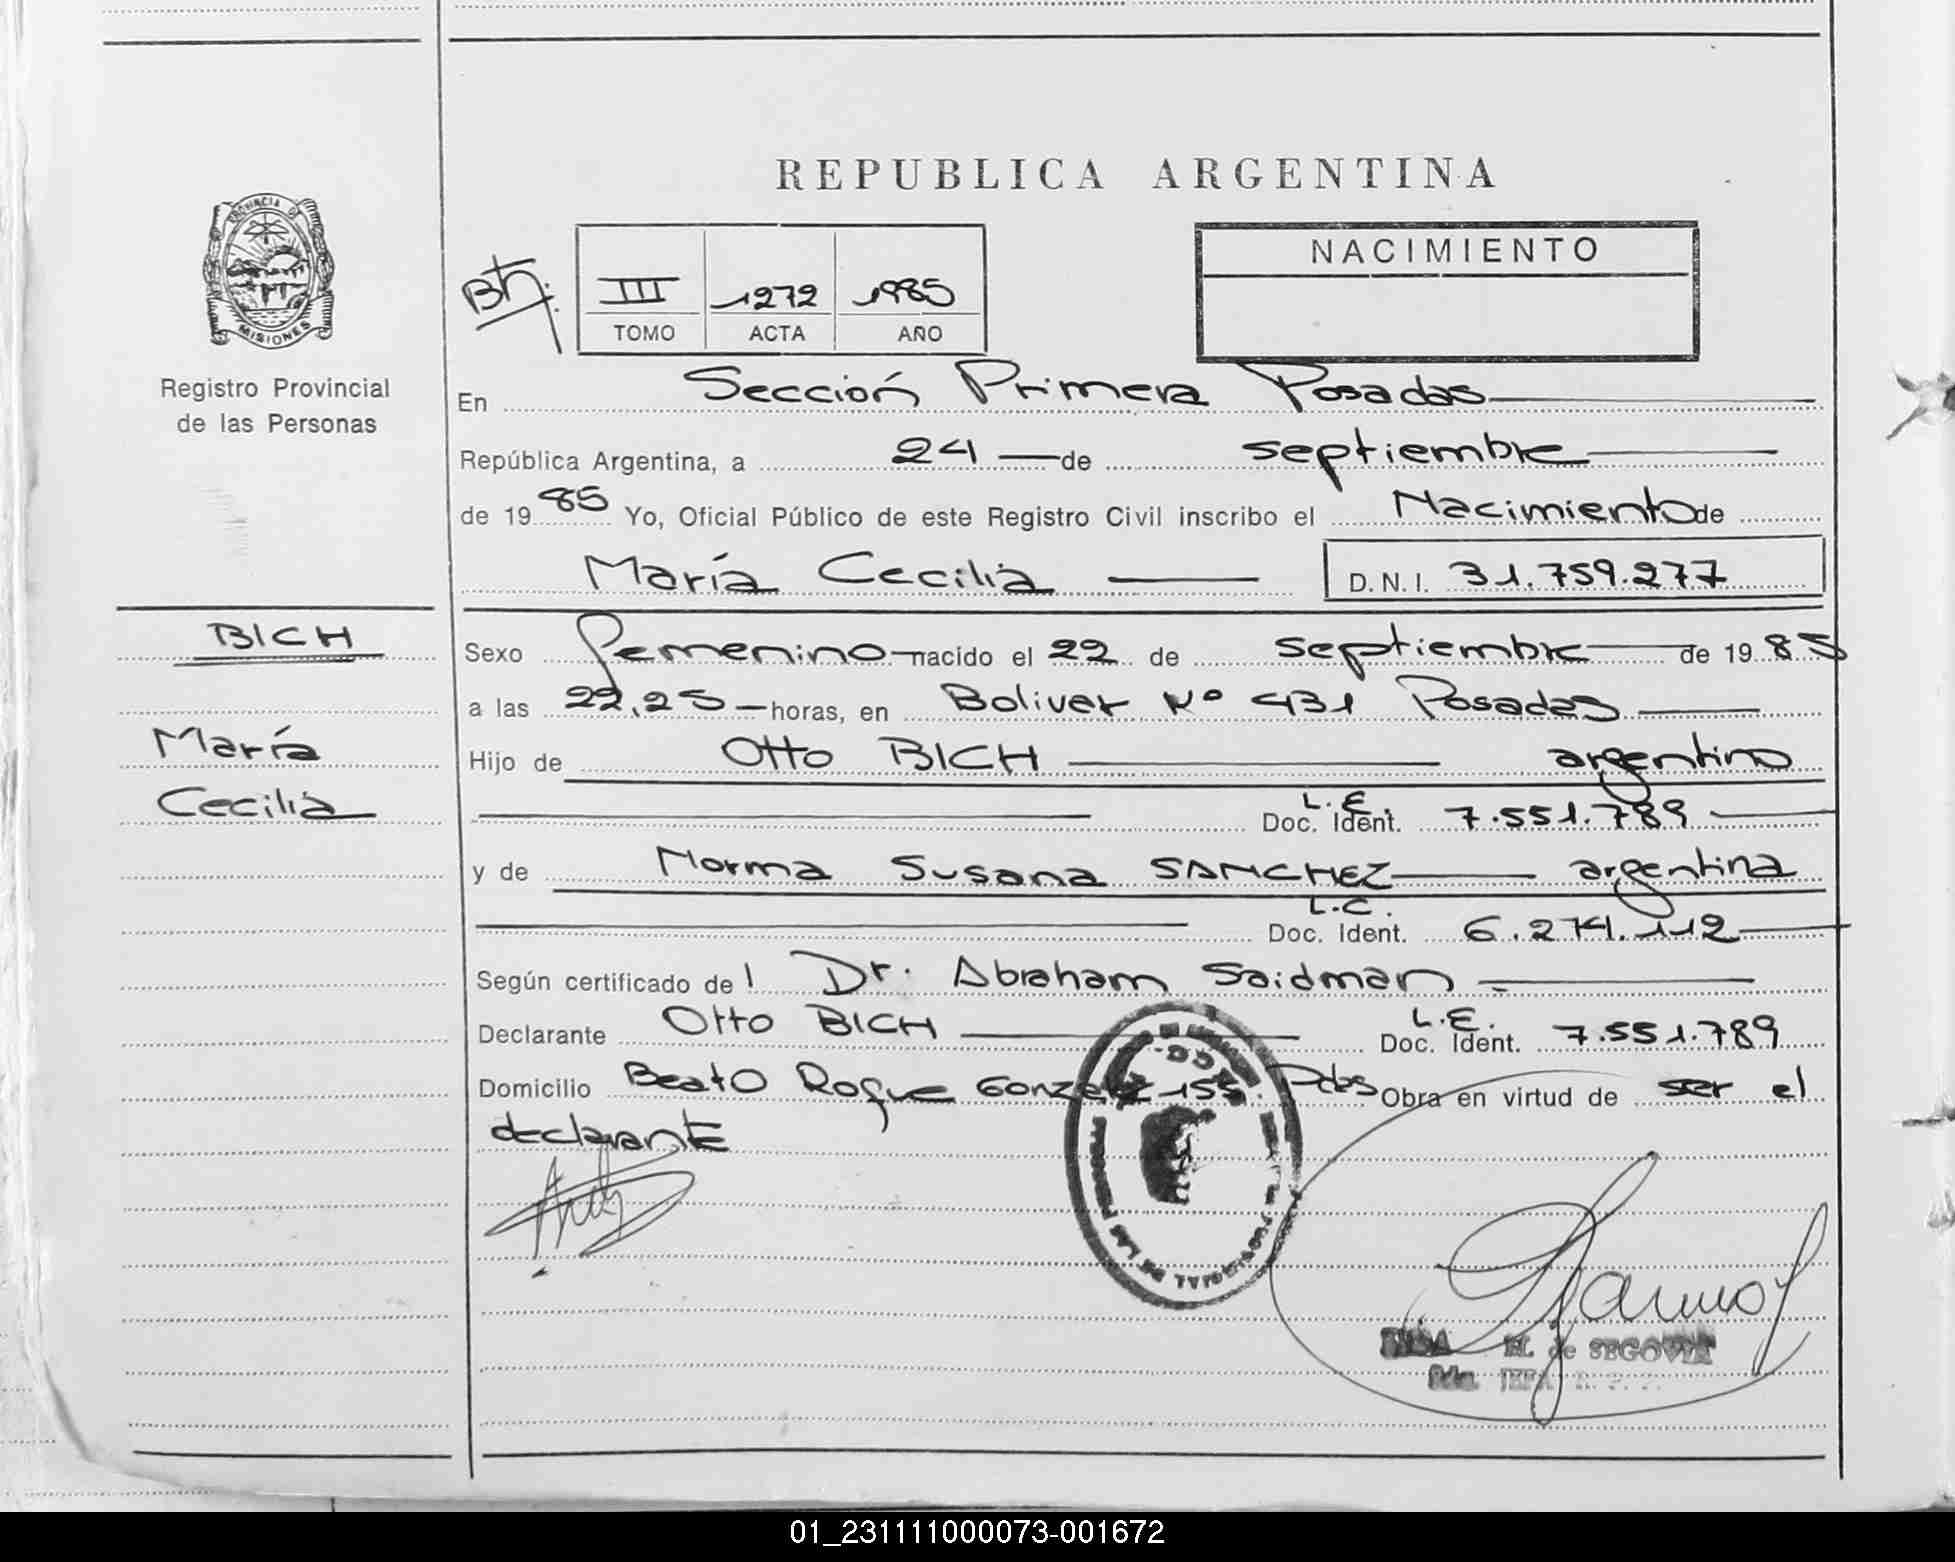 REPUBLICA ARGENTINA
PROVINCIA DE
MISIONES
Registro Provincial
de las Personas
NACIMIENTO
III 1272 1985
TOMO ACTA AÑO
En Sección Primera Posadas
República Argentina, a 24 de septiembre
de 1985 Yo, Oficial Público de este Registro Civil inscribo el Nacimiento de
María Cecilia D.N.I. 31.759.277
BICH
María
Cecilia
Sexo femenino nacido el 22 de septiembre de 1985
a las 22,25 horas, en Bolivar Nº 431 Posadas
Hijo de Otto BICH argentino
L.E.
Doc. Ident. 7.551.789
y de Norma Susana SANCHEZ argentina
L.C.
Doc. Ident. 6.274.112
Según certificado del Dr. Abraham Saidman
Declarante Otto BICH L.E. Doc. Ident. 7.551.789
Domicilio Beato Roque Gonzalez 155. Pdas Obra en virtud de ser el
declarante
de SEGOVIA
01_231111000073-001672